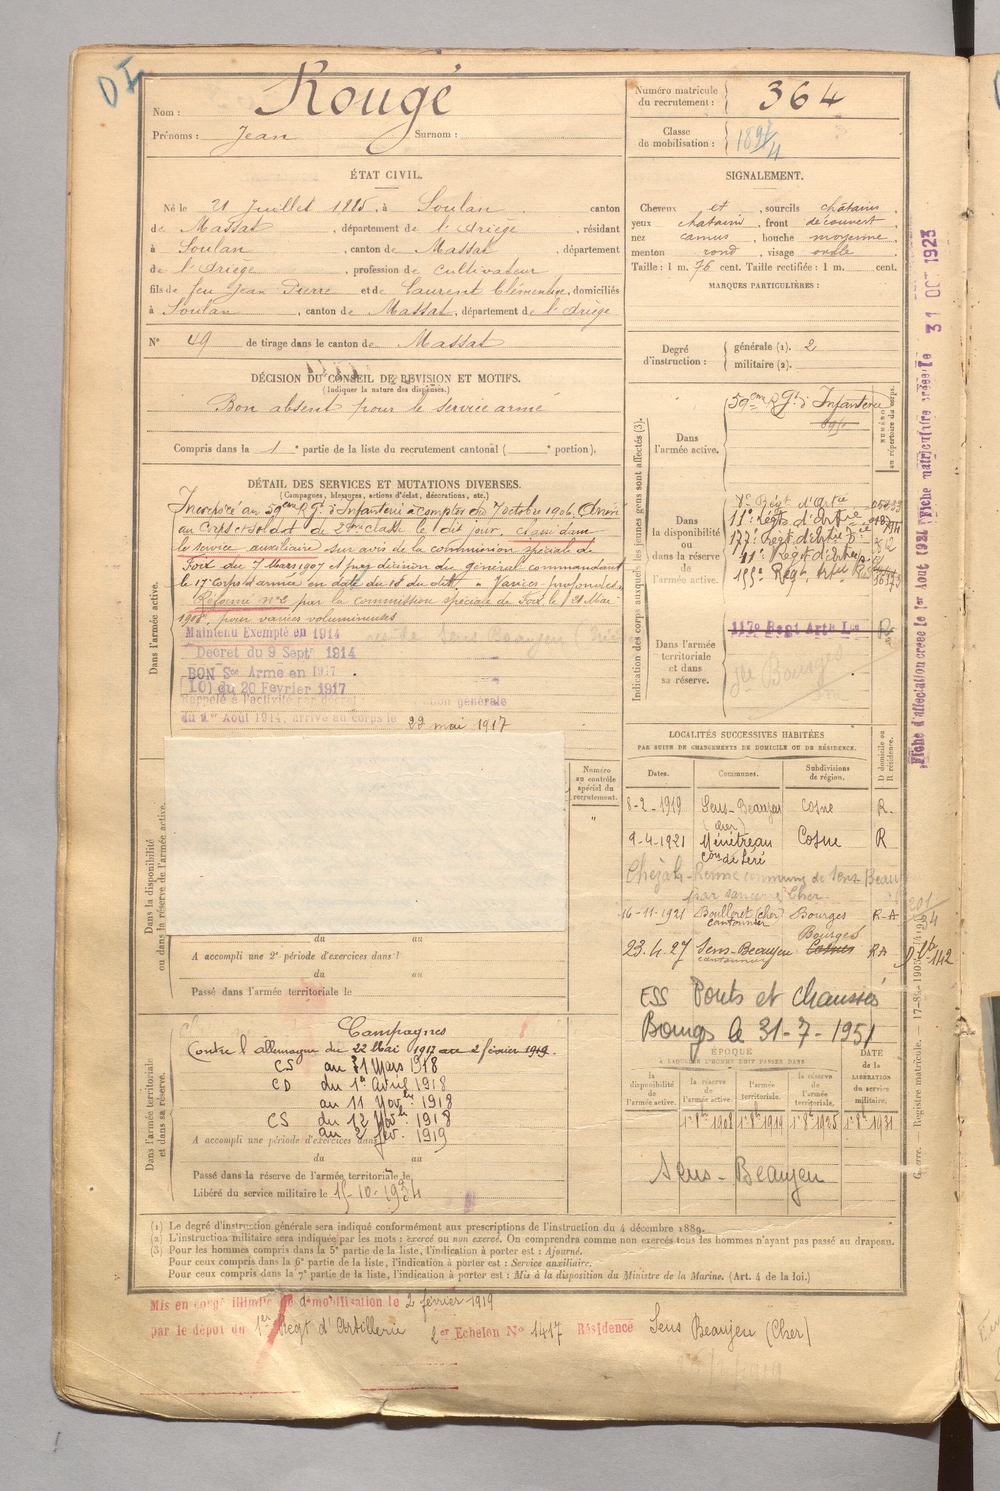 Nom : Rougé
Prénoms : Jean Surnom :
Numéro matricule du recrutement : 364
Classe de mobilisation :
ÉTAT CIVIL.
Né le 21 Juillet 1885, à Soulan canton
de Massat, département de l'Ariège, résidant
à Soulan, canton de Massat, département
de l'Ariège, profession de cultivateur
fils de feu Jean Pierre et de Laurent Clémentine, domiciliés
à Soulan, canton de Massat, département de l'Ariège
N° 49 de tirage dans le canton de Massat
SIGNALEMENT.
Cheveux et, sourcils châtains
yeux chatains, front découvert
nez camus, bouche moyenne
menton rond, visage ovale
Taille : 1 m. 76 cent. Taille rectifiée : 1 m. cent.
MARQUES PARTICULIÈRES :
Degré d'instruction : générale (1). 2
militaire (2).
DÉCISION DU CONSEIL DE REVISION ET MOTIFS.
(Indiquer la nature des dispenses.)
Bon absent pour le service armé
Compris dans la 1e partie de la liste du recrutement cantonal ( e portion).
DÉTAIL DES SERVICES ET MUTATIONS DIVERSES.
(Campagnes, blessures, actions d'éclat, décorations, etc.)
Dans l'armée active.
Incorporé au 59eme Rgt d'Infanterie à compter du 7 octobre 1906. Arrivé
au Corps et soldat de 2eme classe le dit jour, classé dans
le service auxiliaire sur avis de la commission spéciale de
Foix du 7 Mars 1907 et par décision du général commandant
le 17e Corps d'armée en date du 18 du dit. « Varices profondes »
Réformé n° 2 par la commission spéciale de Foix le 21 Mai
1908, pour varices volumineuses
Maintenu Exempté en 1914
Décret du 9 Septe 1914
BON Sce Armé en 1917
LOI du 20 Février 1917
Rappelé à l'activité par décret générale
du 1er Août 1914, arrivé au corps le 22 mai 1917
Indication des corps auxquels les jeunes gens sont affectés (3).
NUMÉRO au répertoire du corps.
Dans l'armée active.
59eme Rgt d'Infanterie
Dans la disponibilité ou dans la réserve de l'armée active.
11e Regt d'Artie
177e Regt d'Artie
Dans l'armée territoriale et dans sa réserve.
117e Regt Artie Lde R
Fiche d'affectation créée le 1er Aout 1924 Fiche matriculaire créée le 31 OCT 1923
LOCALITÉS SUCCESSIVES HABITÉES
PAR SUITE DE CHANGEMENTS DE DOMICILE OU DE RÉSIDENCE.
Dates. Communes. Subdivisions de région. D domicile ou R résidence.
8-2-1919 Sens-Beaujeu (cher) Cosne R.
9-4-1921 Ménétréau con de Léré Cosne R
par sancerre Cher.
16-11-1921 Boulleret (cher) cantonnier Bourges R-A
23.4.27 Sens-Beaujeu cantonnier Cosnes Bourges RA
ESS Ponts et chaussés
Bourges le 31-7-1951
Dans la disponibilité ou dans la réserve de l'armée active.
Numéro au contrôle spécial du recrutement.
du au
A accompli une 2e période d'exercices dans l
du au
Passé dans l'armée territoriale le
Dans l'armée territoriale et dans sa réserve.
Campagnes
Contre l'allemagne du 22 Mai 1917 au 2 février 1919.
CS au 31 Mars 1918
CD du 1er Avril 1918
au 11 Novbre 1918
CS du 12 Novbre 1918
au 2 fév. 1919
A accompli une période d'exercices dans
du au
Passé dans la réserve de l'armée territoriale, le
Libéré du service militaire le 15-10-1934
ÉPOQUE
À LAQUELLE L'HOMME DOIT PASSER DANS
la disponibilité de l'armée active. la réserve de l'armée active. l'armée territoriale. la réserve de l'armée territoriale. DATE de la LIBÉRATION du service militaire.
1er 8bre 1908 1er 8bre 1919 1er 8bre 1925 1er 8bre 1931
Sens-Beaujeu
(1) Le degré d'instruction générale sera indiqué conformément aux prescriptions de l'instruction du 4 décembre 1889.
(2) L'instruction militaire sera indiquée par les mots : exercé ou non exercé. On comprendra comme non exercés tous les hommes n'ayant pas passé au drapeau.
(3) Pour les hommes compris dans la 5e partie de la liste, l'indication à porter est : Ajourné.
Pour ceux compris dans la 6e partie de la liste, l'indication à porter est : Service auxiliaire.
Pour ceux compris dans la 7e partie de la liste, l'indication à porter est : Mis à la disposition du Ministre de la Marine. (Art. 4 de la loi.)
Mis en congé illimité de démobilisation le 2 février 1919
par le dépôt du 1er Régt d'Artillerie 2er Echelon N° 1417 Résidence Sens Beaujeu (Cher)